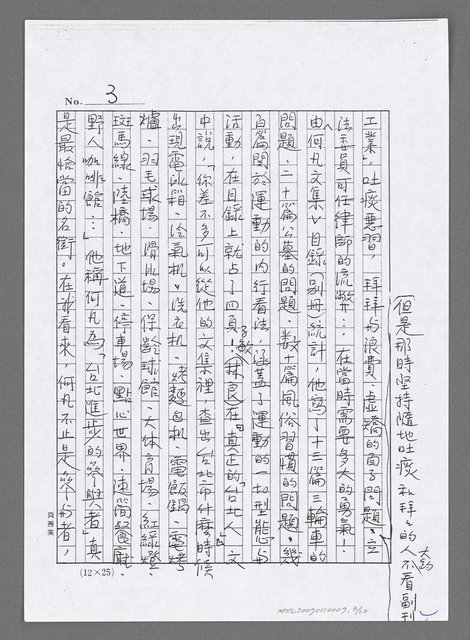 No. 3
但是那時堅持隨地吐痰和拜拜的人大約不看副刊
工業」，吐痰惡習，拜拜与浪費、虛矯的面子問題、立
法委員可任律師的流弊…在當時需要多大的勇氣！
由《何凡文集》目錄（別冊）統計，他寫了十三篇三輪車的
問題，二十篇公墓的問題，數十篇風俗習慣的問題。幾
百篇關於運動的内行看法，涵蓋了運動的一切型態与
活動，在目錄上就占了四頁多。林良在「真正的『台北人』」文
中說，「你差不多可以從他的文集裡查出台北市什麼時候
出現電冰箱、冷氣机、洗衣机、烤麵包机、電飯鍋、電烤
爐、羽毛球場、滑冰場、保齡球館、大体育場、紅綠燈、
斑馬線、陸橋、地下道、停車場、點心世界、速簡餐廳、
野人咖啡館…」他稱何凡為「台北進步的參與者」真
是最恰當的名銜。在我看來，何凡不止是參与者，
(12×25)
頁獨美